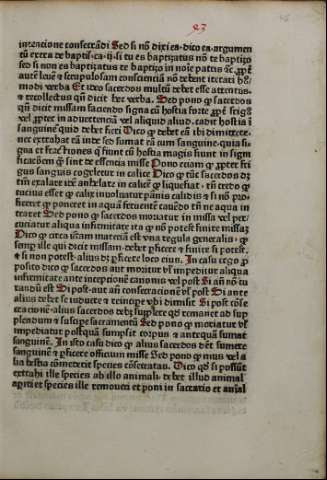 23
intencione consecrãdi Sed si nõ dixi es. dico ex. argumen
tũ extra de baptis. ca. ij. si tu es baptizatus nõ te baptizo
sed si non es baptizatus te baptizo in noĩe patris ⁊c̃
autẽ leuẽ ⁊ scrupulosam conscienciã nõ debent iterari
modi verba Et ideo sacerdos multũ debet esse attentus.
⁊ recollectus qũ dicit hec verba. Sed pono ꝙ sacerdos
qũ dicit missam faciendo signa cũ hostia forte
vel in aduertenciã vel aliquid aliud. cadit hostia ĩ
sanguinẽ quid debet fieri Dico ꝙ debet eã ibi dimittere.
nec extrahat eã inde sed sumat eã cum sanguine. quia si-
gna et fractiones q̃ fiunt cũ hostia magis fiunt in signi
ficacõem q̃ sint de essencia misse Pono eciam ꝙ
gus sanguis cogeletur in calice Dico ꝙ tũc sacerdos
tiũ exalare tẽ anhelate in calicẽ ꝙ liquefiat.
tucius esset ꝙ calix inuoluatur pãnis calidis ⁊ si nõ pro-
ficeret ꝙ poneret in aquã feruentẽ cauẽdo tñ ne aqua in
traret Sed pono ꝙ sacerdos moriatur in missa vel
cuciatur aliqua infirmitate ita ꝙ nõ potest finire missaz
Dico ꝙ circa istam materiã est vna regula generalis. ꝙ
semp ille qui dicit missam. debet ꝑficere ⁊ finire si potest.
⁊ si non potest. alius dʒ ꝑficere loco eius. In casu ergo ꝓ
posito dico ꝙ sacerdos aut moritur vl' impeditur aliqua
infirmitate ante inceptionẽ canonis vel post Si añ nõ
randũ est Si post. aut añ consecracionẽ vl' post Si ante
alius debet se induere ⁊ incipere vbi dimisit Si post cõse
cracionẽ. alius sacerdos debʒ supplere qd remanet ab sup
plendum ⁊ suscipe sacramentũ Sed pono ꝙ moriatur vl'
impediatur postquã sumpsit corpus ⁊ antequã sumat
sanguinẽ. In isto casu dico ꝙ alius sacerdos debet sumere
sanguinẽ ⁊ ꝑficere officium misse Sed pono ꝙ mus vel a
lia bestia cõmederit species cõsecratas. Dico qd si possũt
extrahi ille species ab illo animali. debet illud animal
aperiri et species ille remoueri et poni in sacrario et aĩal